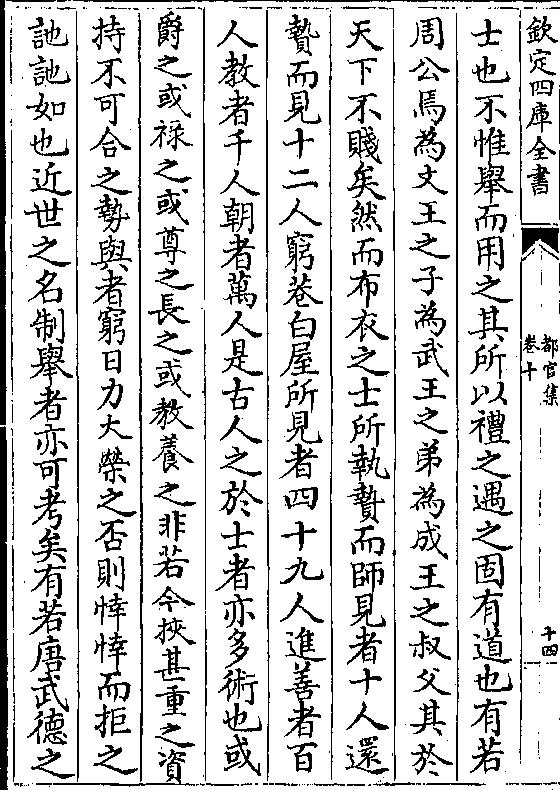 欽定四庫全書
都官集
卷十
十四
士也不惟舉而用之其所以禮之遇之固有道也有若
周公焉為文王之子為武王之弟為成王之叔父其於
天下不賤矣然而布衣之士所執贄而師見者十人還
贄而見十二人窮巷白屋所見者四十九人進善者百
人教者千人朝者萬人是古人之於士者亦多術也或
爵之或祿之或尊之長之或教養之非若今挾甚重之資
持不可合之勢與者窮日力大榮之否則悻悻而拒之
訑訑如也近世之名制舉者亦可考矣有若唐武德之